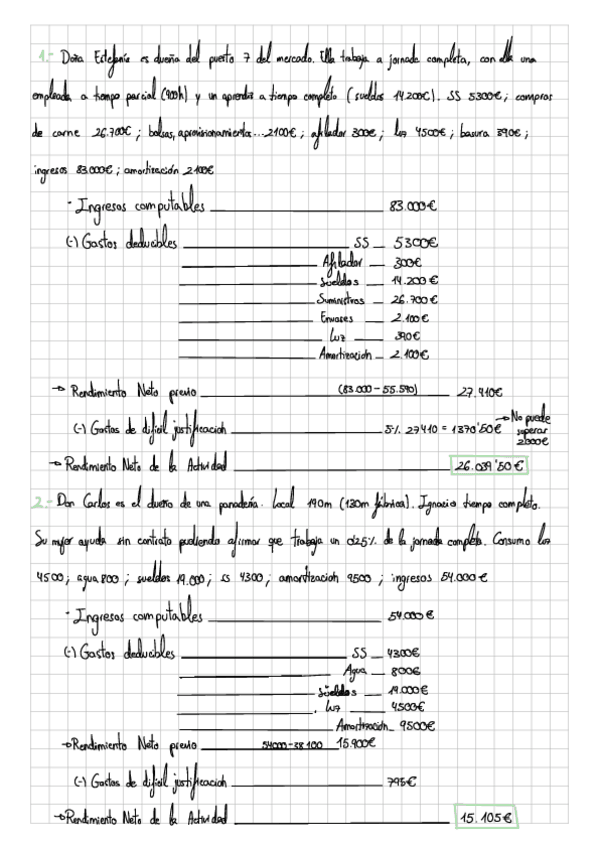 1.- Doña Estefanía es dueña del puesto 7 del mercado. Ella trabaja a jornada completa, con ella una
empleada a tiempo parcial (900h) y un aprendiz a tiempo completo (sueldos 14.200€). SS 5300€; compras
de carne 26.700€; bolsas, aprovisionamiento... 2100€; afilador 300€; luz 4500€; basura 390€;
ingresos 83.000€; amortización 2.100€
· Ingresos computables 83.000€
(-) Gastos deducibles SS 5300€
Afilador 300€
Sueldos 14.200€
Suministros 26.700€
Envases 2.100€
Luz 390€
Amortización 2.100€
→ Rendimiento Neto previo (83.000-55.590) 27.410€
(-) Gastos de difícil justificación 5% 27410 = 1370'50€ → No puede superar 2000€
→ Rendimiento Neto de la Actividad 26.039'50€
2.- Don Carlos es el dueño de una panadería. Local 190m (130m fábrica). Ignacio tiempo completo.
Su mujer ayuda sin contrato pudiendo afirmar que trabaja un d25% de la jornada completa. Consumo luz
4500; agua 800; sueldos 19.000; ss 4300; amortización 9500; ingresos 54.000€
· Ingresos computables 54.000€
(-) Gastos deducibles SS 4300€
Agua 800€
Sueldos 19.000€
Luz 4500€
Amortización 9500€
→ Rendimiento Neto previo 54000-38.100 15.900€
(-) Gastos de difícil justificación 795€
→ Rendimiento Neto de la Actividad 15.105€